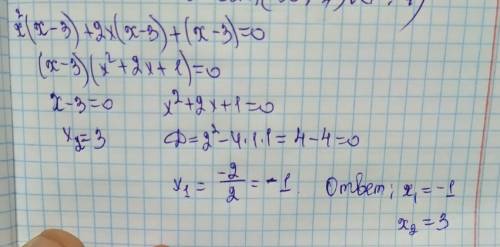 x²(x-3)+2x(x-3)+(x-3)=0
(x-3)(x²+2x+1)=0
x-3=0 x²+2x+1=0
x₂=3 D=2²-4·1·1=4-4=0
x₁ = -2/2 = -1. Ответ: x₁=-1
x₂=3